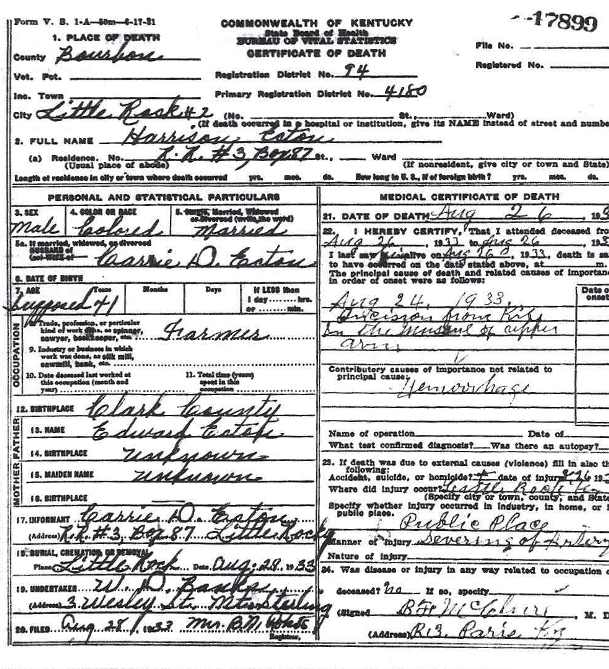 Form V. S. 1-A—50m—6-17-31
17899
COMMONWEALTH OF KENTUCKY
State Board of Health
BUREAU OF VITAL STATISTICS
CERTIFICATE OF DEATH
1. PLACE OF DEATH
County Bourbon
File No.
Registered No.
Vot. Pct.
Registration District No. 94
Inc. Town
Primary Registration District No. 4180
City Little Rock #2 (No. St., Ward)
(If death occurred in a hospital or institution, give its NAME instead of street and numbe
2. FULL NAME Harrison Ecton
(a) Residence. No. R.R. #3, Box 87 St., Ward
(Usual place of abode) (If nonresident, give city or town and State)
Length of residence in city or town where death occurred yrs. mos. ds. How long in U. S., if of foreign birth? yrs. mos. ds.
PERSONAL AND STATISTICAL PARTICULARS
3. SEX
Male
4. COLOR OR RACE
Colored
5. Single, Married, Widowed
or Divorced (write the word)
Married
5a. If married, widowed, or divorced
HUSBAND of
(or) WIFE of
Carrie D. Ecton
6. DATE OF BIRTH
7. AGE Years Months Days If LESS than
1 day hrs.
or min.
Supposed 41
OCCUPATION
8. Trade, profession, or particular
kind of work done, as spinner,
sawyer, bookkeeper, etc.
Farmer
9. Industry or business in which
work was done, as silk mill,
sawmill, bank, etc.
10. Date deceased last worked at
this occupation (month and
year)
11. Total time (years)
spent in this
occupation
12. BIRTHPLACE Clark County
FATHER
13. NAME Edward Ecton
14. BIRTHPLACE Unknown
MOTHER
15. MAIDEN NAME Unknown
16. BIRTHPLACE
17. INFORMANT Carrie D. Ecton
(Address) R.R. #3, Box 87 Little Rock
18. BURIAL, CREMATION OR REMOVAL
Place Little Rock Date Aug. 28, 1933
19. UNDERTAKER W. D. Banks
(Address) 3. Wesley St. Mt. Sterling
20. FILED Aug 28, 1933 Mrs.
Registrar.
MEDICAL CERTIFICATE OF DEATH
21. DATE OF DEATH Aug 26, 193
22. I HEREBY CERTIFY, That I attended deceased fro
Aug 26, 1933 to Aug 26, 193
I last saw alive on Aug 26, 1933, death is sa
to have occurred on the date stated above, at m.
The principal cause of death and related causes of importance
in order of onset were as follows:
Date of
onset
Aug 24, 1933.
Incision from
in the of upper
arm
Contributory causes of importance not related to
principal cause:
Hemorrhage
Name of operation Date of
What test confirmed diagnosis? Was there an autopsy?
23. If death was due to external causes (violence) fill in also th
following:
Accident, suicide, or homicide? Date of injury 8-26 193
Where did injury occur? Little Rock Ky
(Specify city or town, county, and State
Specify whether injury occurred in industry, in home, or i
public place.
Public Place
Manner of injury Severing of Artery
Nature of injury
24. Was disease or injury in any way related to occupation o
deceased? no If so, specify
(Signed) M. D
(Address) R 3. Paris Ky